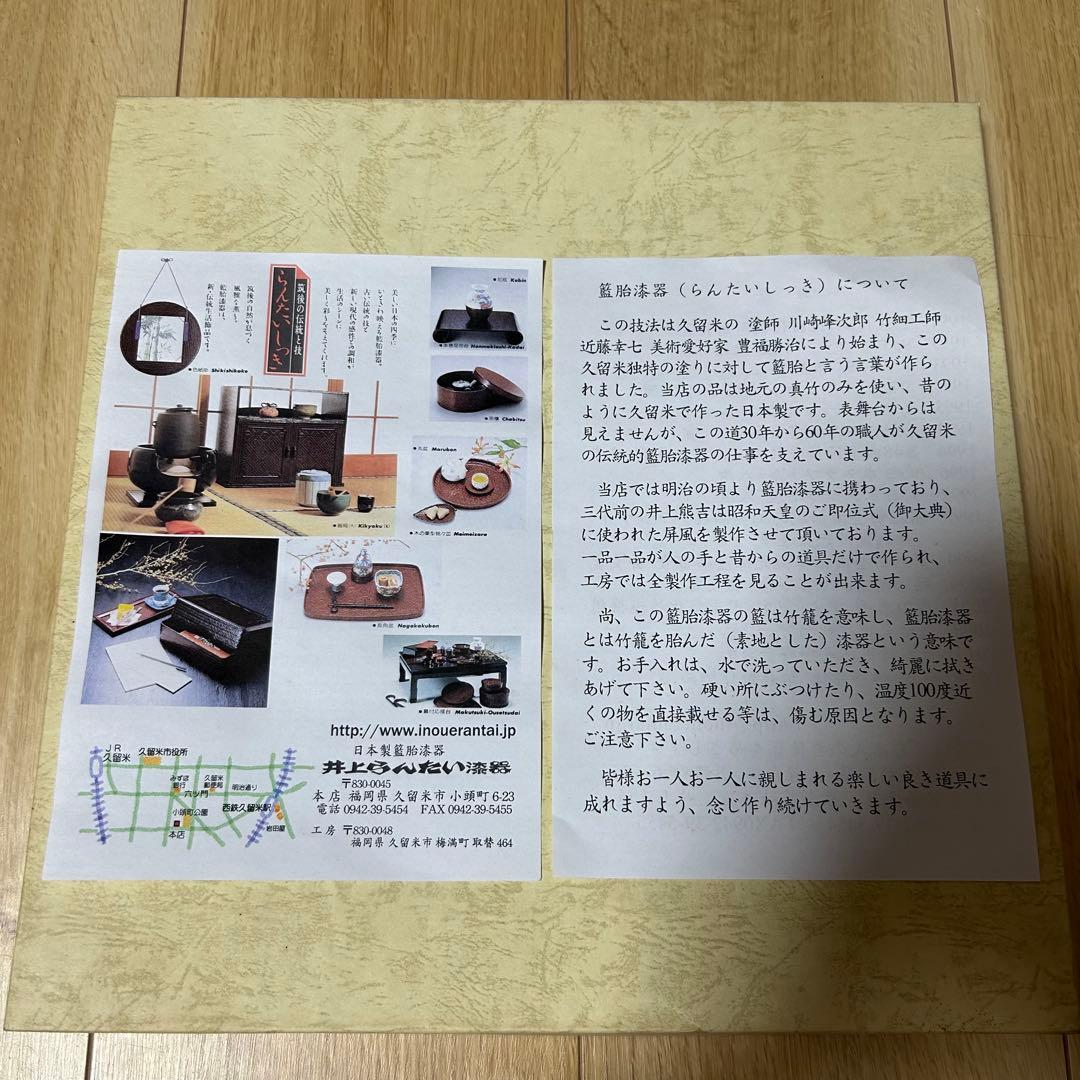 筑後の伝統と技
らんたいしっき
美しい日本の四季に
いとど映える籃胎漆器。
古い伝統の技と
新しい現代の感性との調和が
生活のシーンに
美しく彩りをそえてくれます。
筑後の自然が息づく
風雅を奏でる
籃胎漆器は、
新・伝統生活飾品です。
●色紙掛 Shikishikake
●花瓶 Kabin
Hanmakiashi-Kadai
●茶櫃 Chabitsu
●丸盆 Marubon
●木の葉型銘々皿 Meimeizara
Kikyoku
●長角盆 Nagakakubon
Makutsuki-Ousetsudai
http://www.inouerantai.jp
日本製籃胎漆器
井上らんたい漆器
〒830-0045
本店 福岡県 久留米市 小頭町 6-23
電話 0942-39-5454 FAX 0942-39-5455
工房 〒830-0048
福岡県 久留米市 梅満町 取替 464
JR
久留米
久留米市役所
みずほ
銀行
久留米
郵便局
明治通り
六ツ門
西鉄久留米駅
小頭町公園
本店
岩田屋
籃胎漆器（らんたいしっき）について
この技法は久留米の 塗師 川崎峰次郎 竹細工師
近藤幸七 美術愛好家 豊福勝治により始まり、この
久留米独特の塗りに対して籃胎と言う言葉が作ら
れました。当店の品は地元の真竹のみを使い、昔の
ように久留米で作った日本製です。表舞台からは
見えませんが、この道30年から60年の職人が久留米
の伝統的籃胎漆器の仕事を支えています。
当店では明治の頃より籃胎漆器に携わっており、
三代前の井上熊吉は昭和天皇のご即位式（御大典）
に使われた屏風を製作させて頂いております。
一品一品が人の手と昔からの道具だけで作られ、
工房では全製作工程を見ることが出来ます。
尚、この籃胎漆器の籃は竹籠を意味し、籃胎漆器
とは竹籠を胎んだ（素地とした）漆器という意味で
す。お手入れは、水で洗っていただき、綺麗に拭き
あげて下さい。硬い所にぶつけたり、温度100度近
くの物を直接載せる等は、傷む原因となります。
ご注意下さい。
皆様お一人お一人に親しまれる楽しい良き道具に
成れますよう、念じ作り続けていきます。